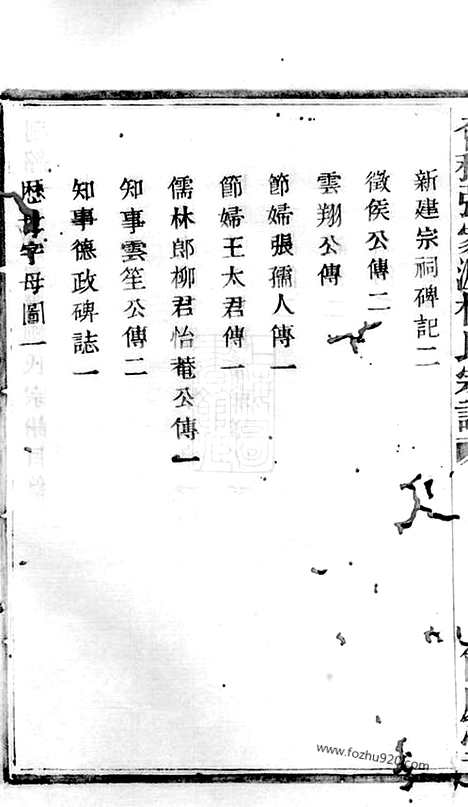 新建宗祠碑記二
徵侯公傳二
雲翔公傳
節婦張孺人傳一
節婦王太君傳一
儒林郎柳君怡菴公傳一
知事雲笙公傳二
知事德政碑誌一
歷世字母圖一
www.fozhu920.com